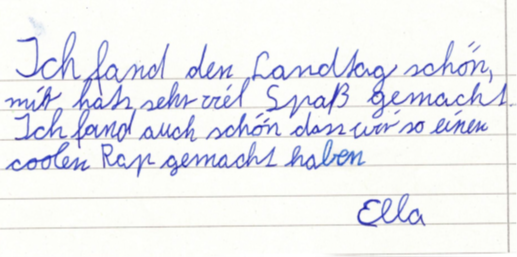 Ich fand den Landtag schön,
mir hats sehr viel Spaß gemacht.
Ich fand auch schön dass wir so einen
coolen Rap gemacht haben
Ella